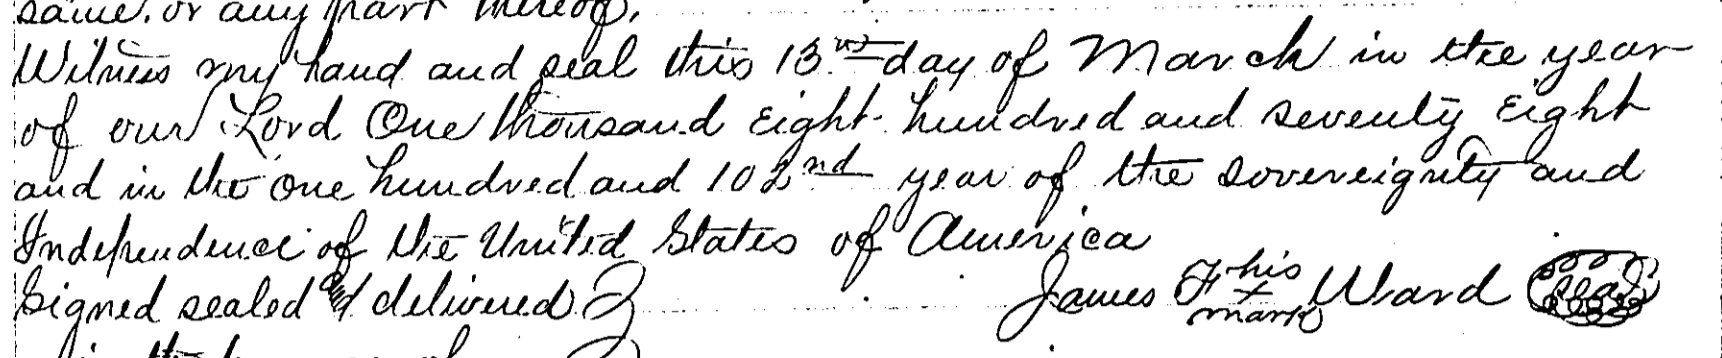 same, or any part thereof.
Witness my hand and seal this 13th day of March in the year
of our Lord One thousand Eight hundred and seventy Eight
and in the one hundred and 102nd year of the sovereignity and
Independence of the United States of America
Signed sealed & delivered James F his x mark Ward seal
in the